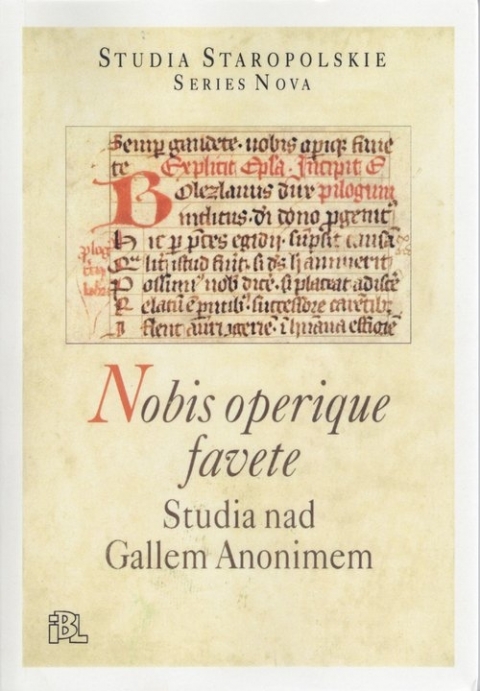 STUDIA STAROPOLSKIE
SERIES NOVA
Semp gaudete. nobis opiqꝫ faue
te Explicit Epla. Incipit E
Bolezlauus dux pilogum
inclitus. di dono pgenit
Hic p pces egidij. supsit causā
lit istud fuit. si ds h annuerit
Possum nob dice. si placeat adisce
Relatū ē pntib. successore carētib
Flent auri
Nobis operique
favete
Studia nad
Gallem Anonimem
IBL